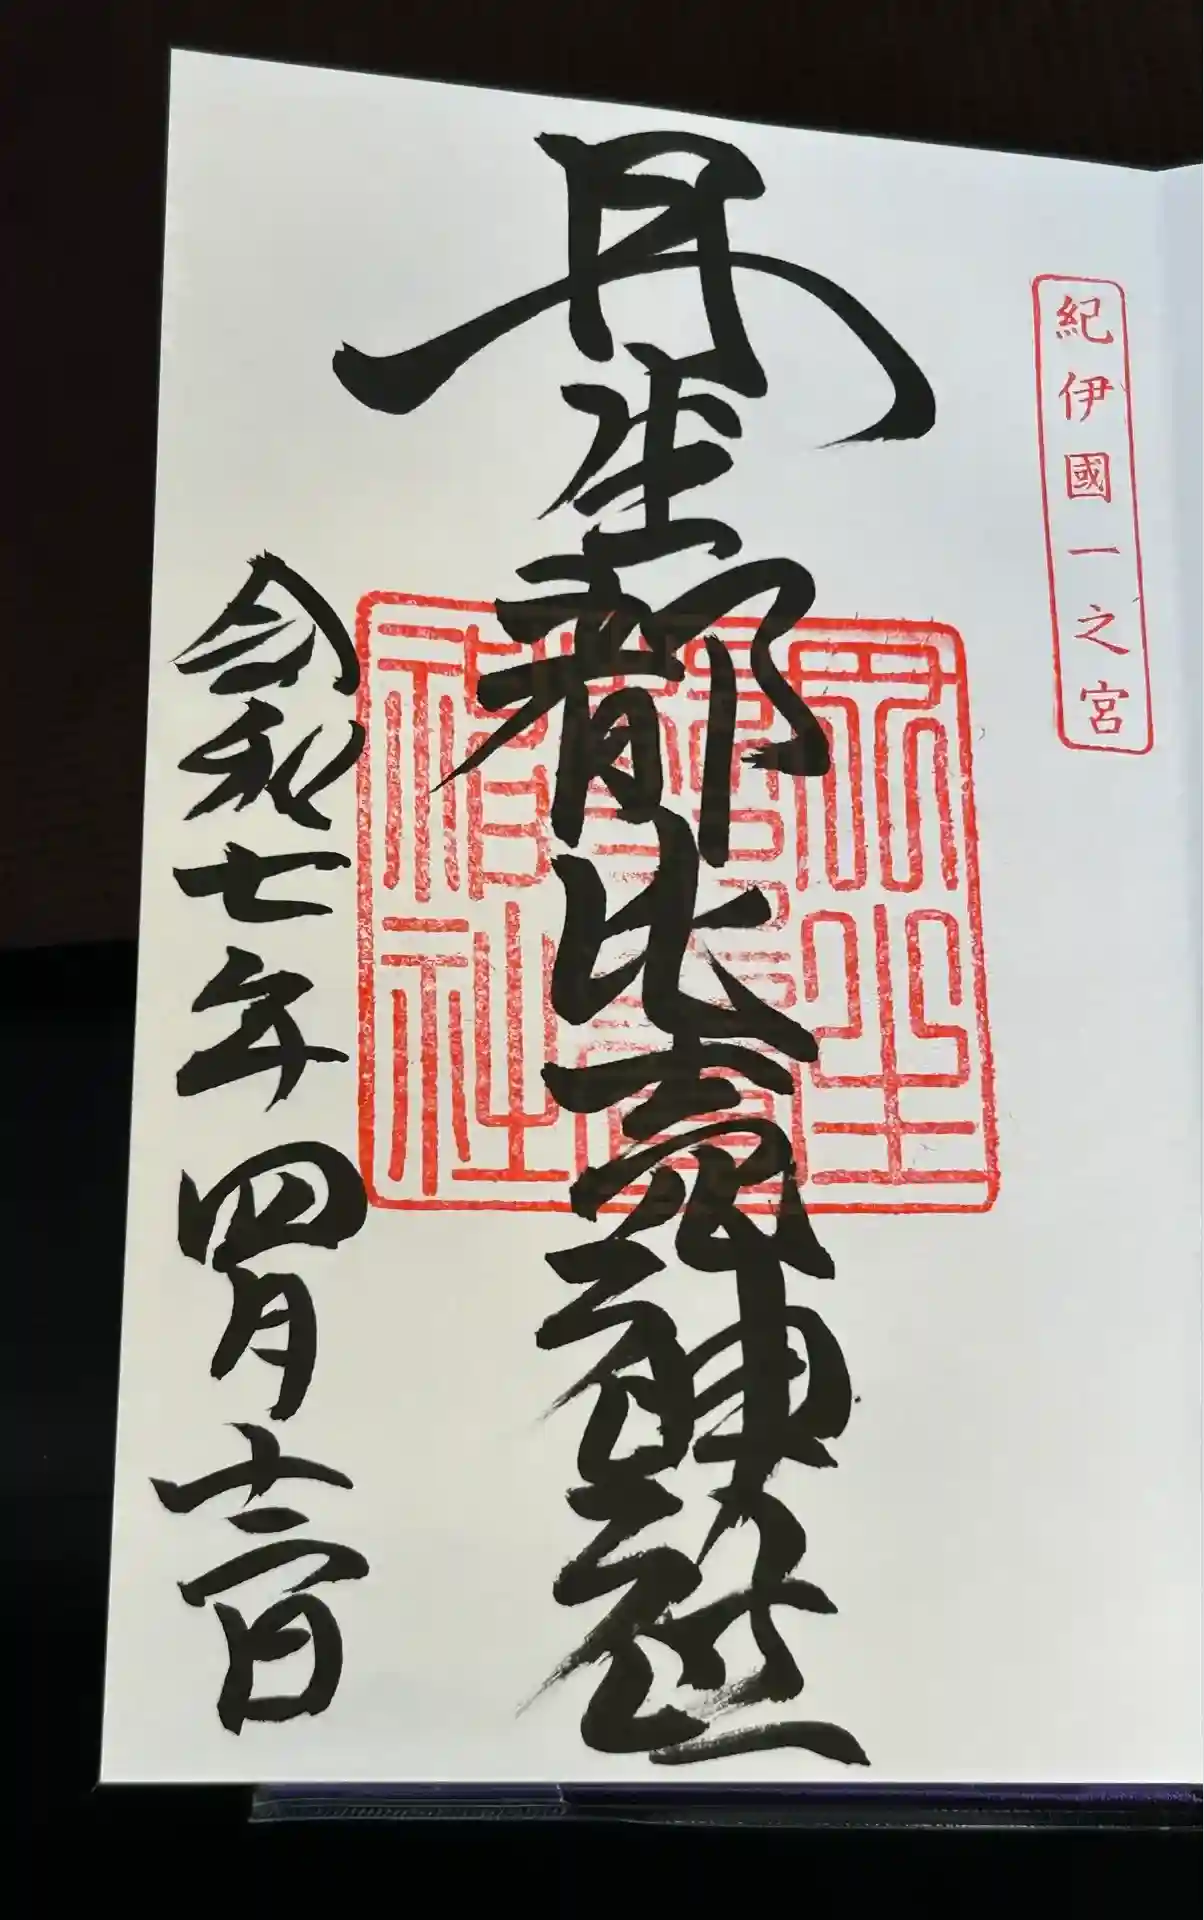 紀伊國一之宮
丹生都比売神社
丹生
神社
令和七年四月十二日